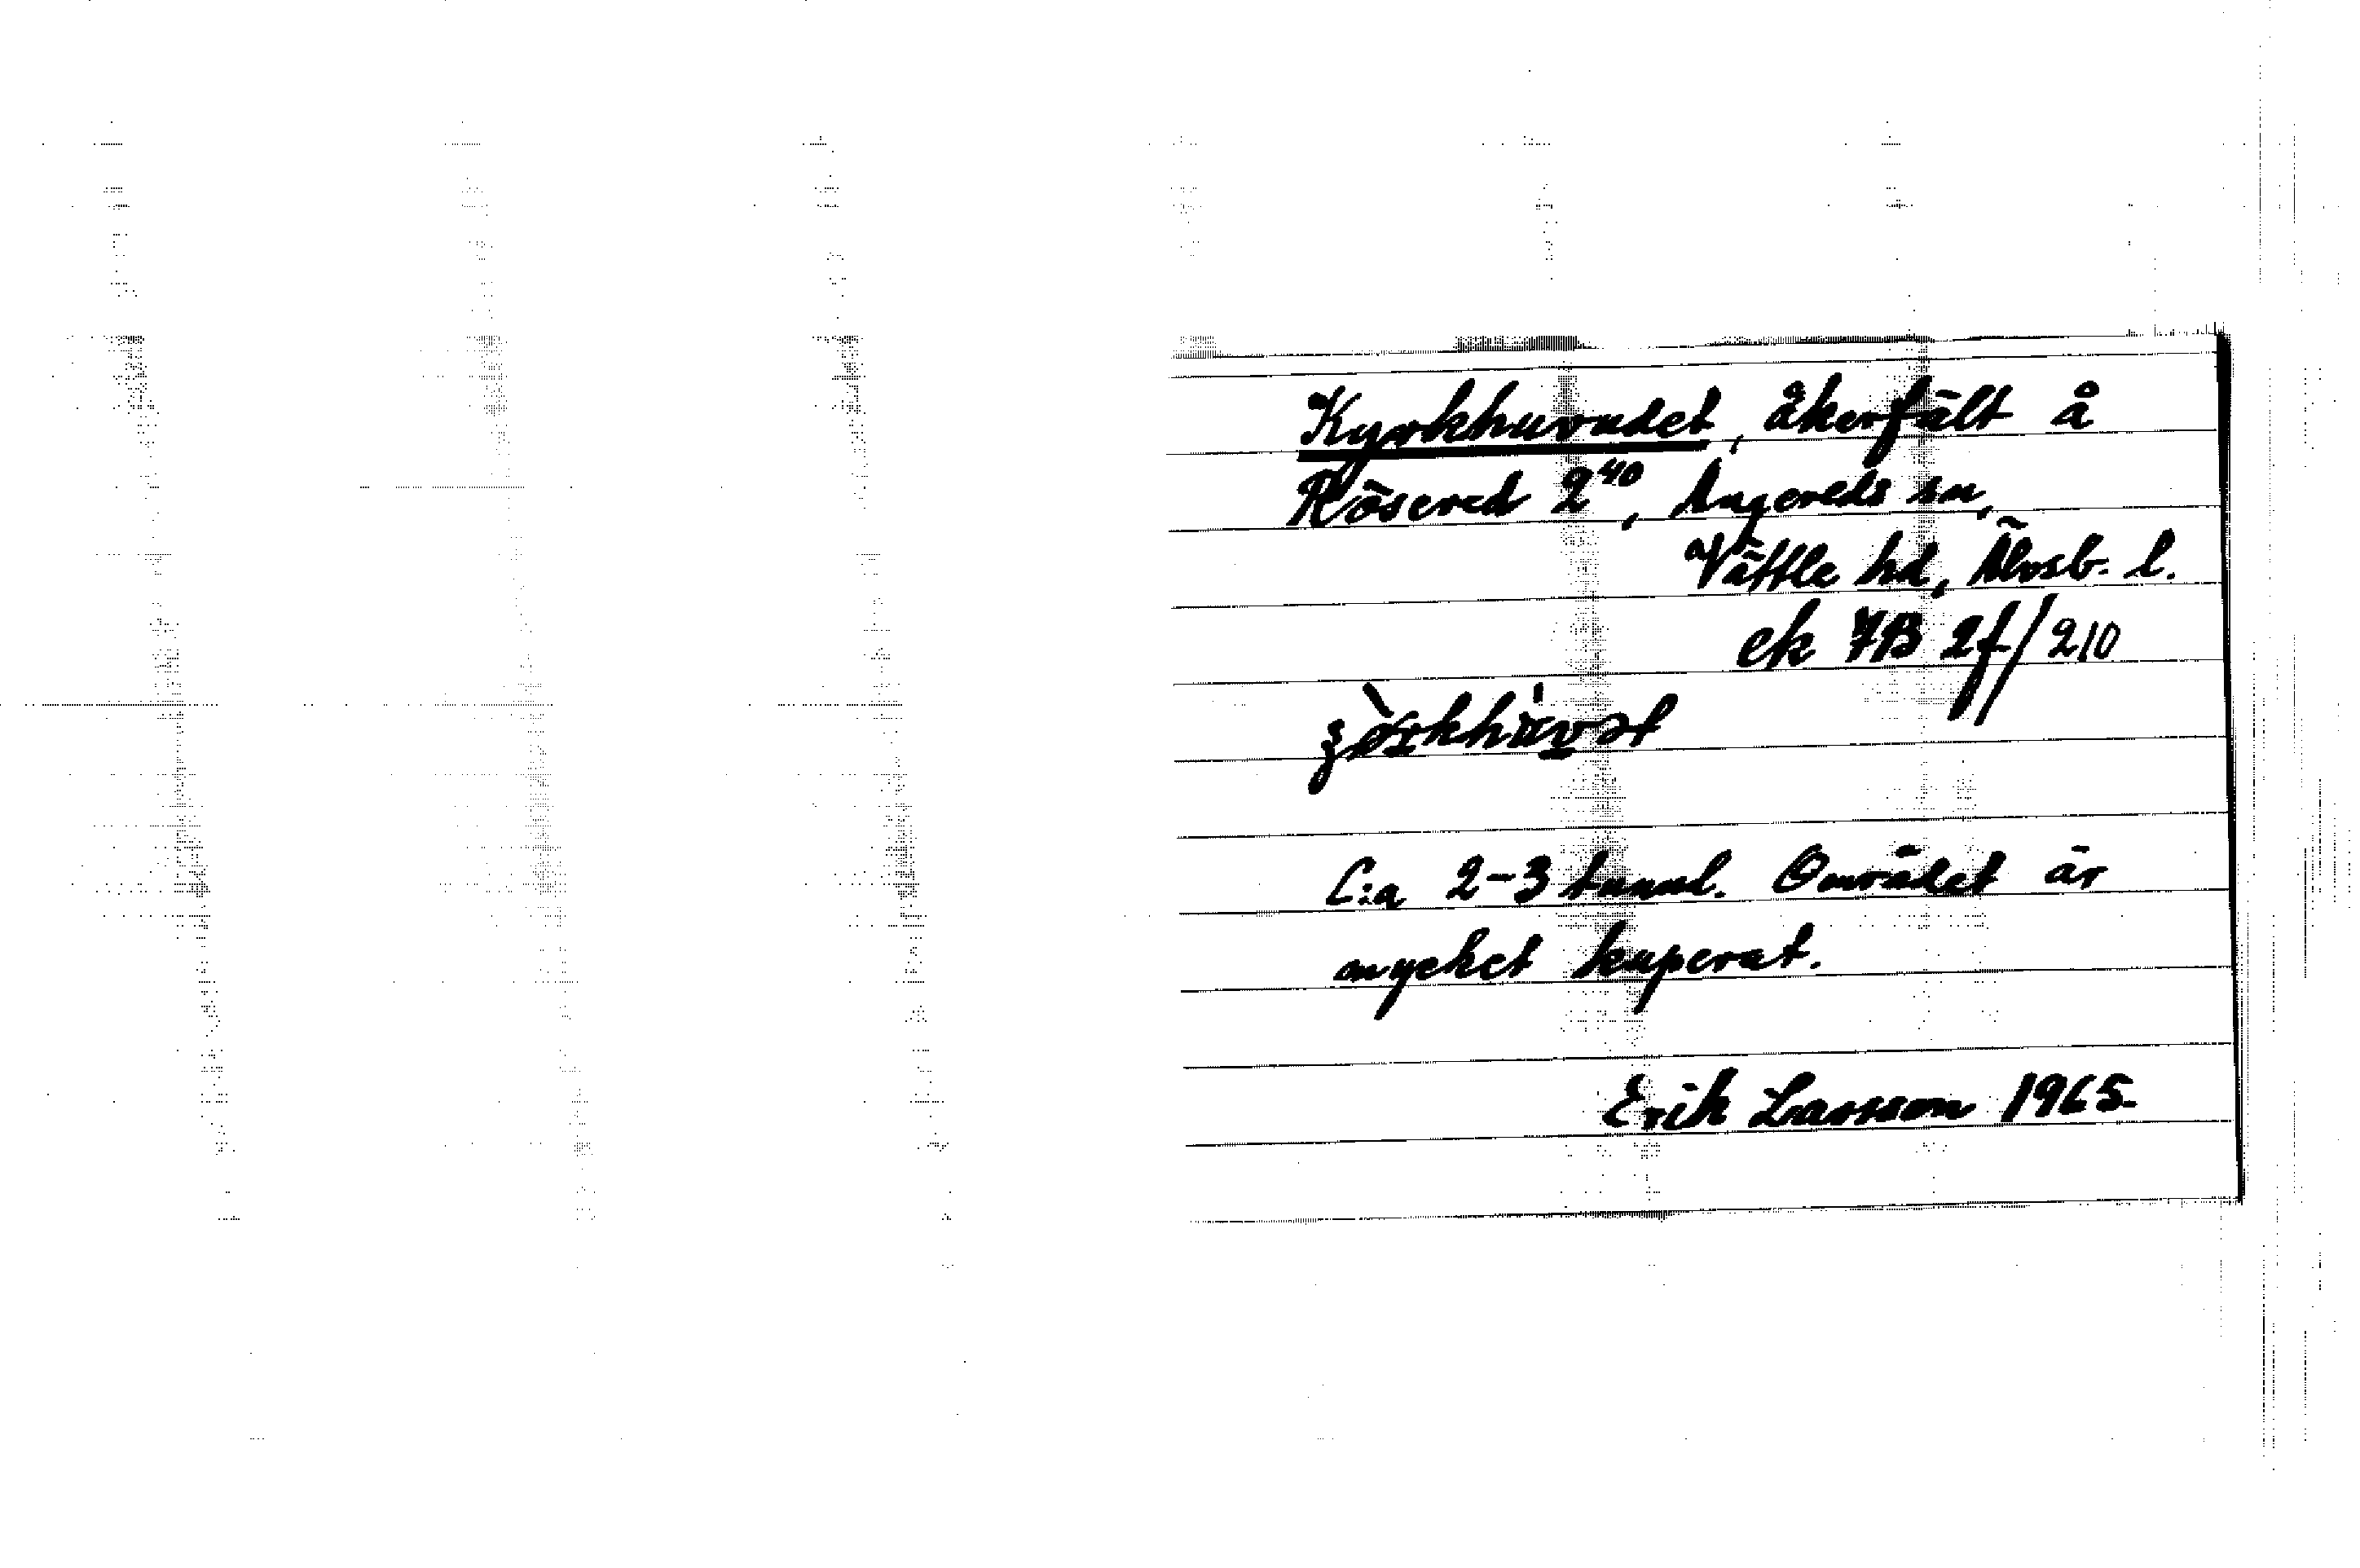 Kyrkhuvudet, åkerfält å
Rösered 2⁴⁰, Angereds sn,
Vättle hd, Älvsb. l.
ek 7B 2f/210
C:a 2-3 tunnl. Området är
mycket kuperat.
Erik Larsson 1965.